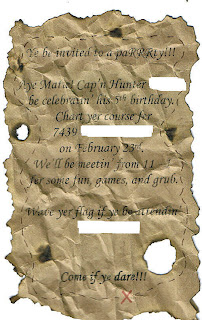 Ye be invited to a paRRRty!!!
Aye Matal Cap'n Hunter
be celebratin' his 5th birthday.
Chart yer course fer
7439
on February 23rd.
We'll be meetin' from 11
fer some fun, games, and grub.
Wave yer flag if ye be attendin'
Come if ye dare!!!
X